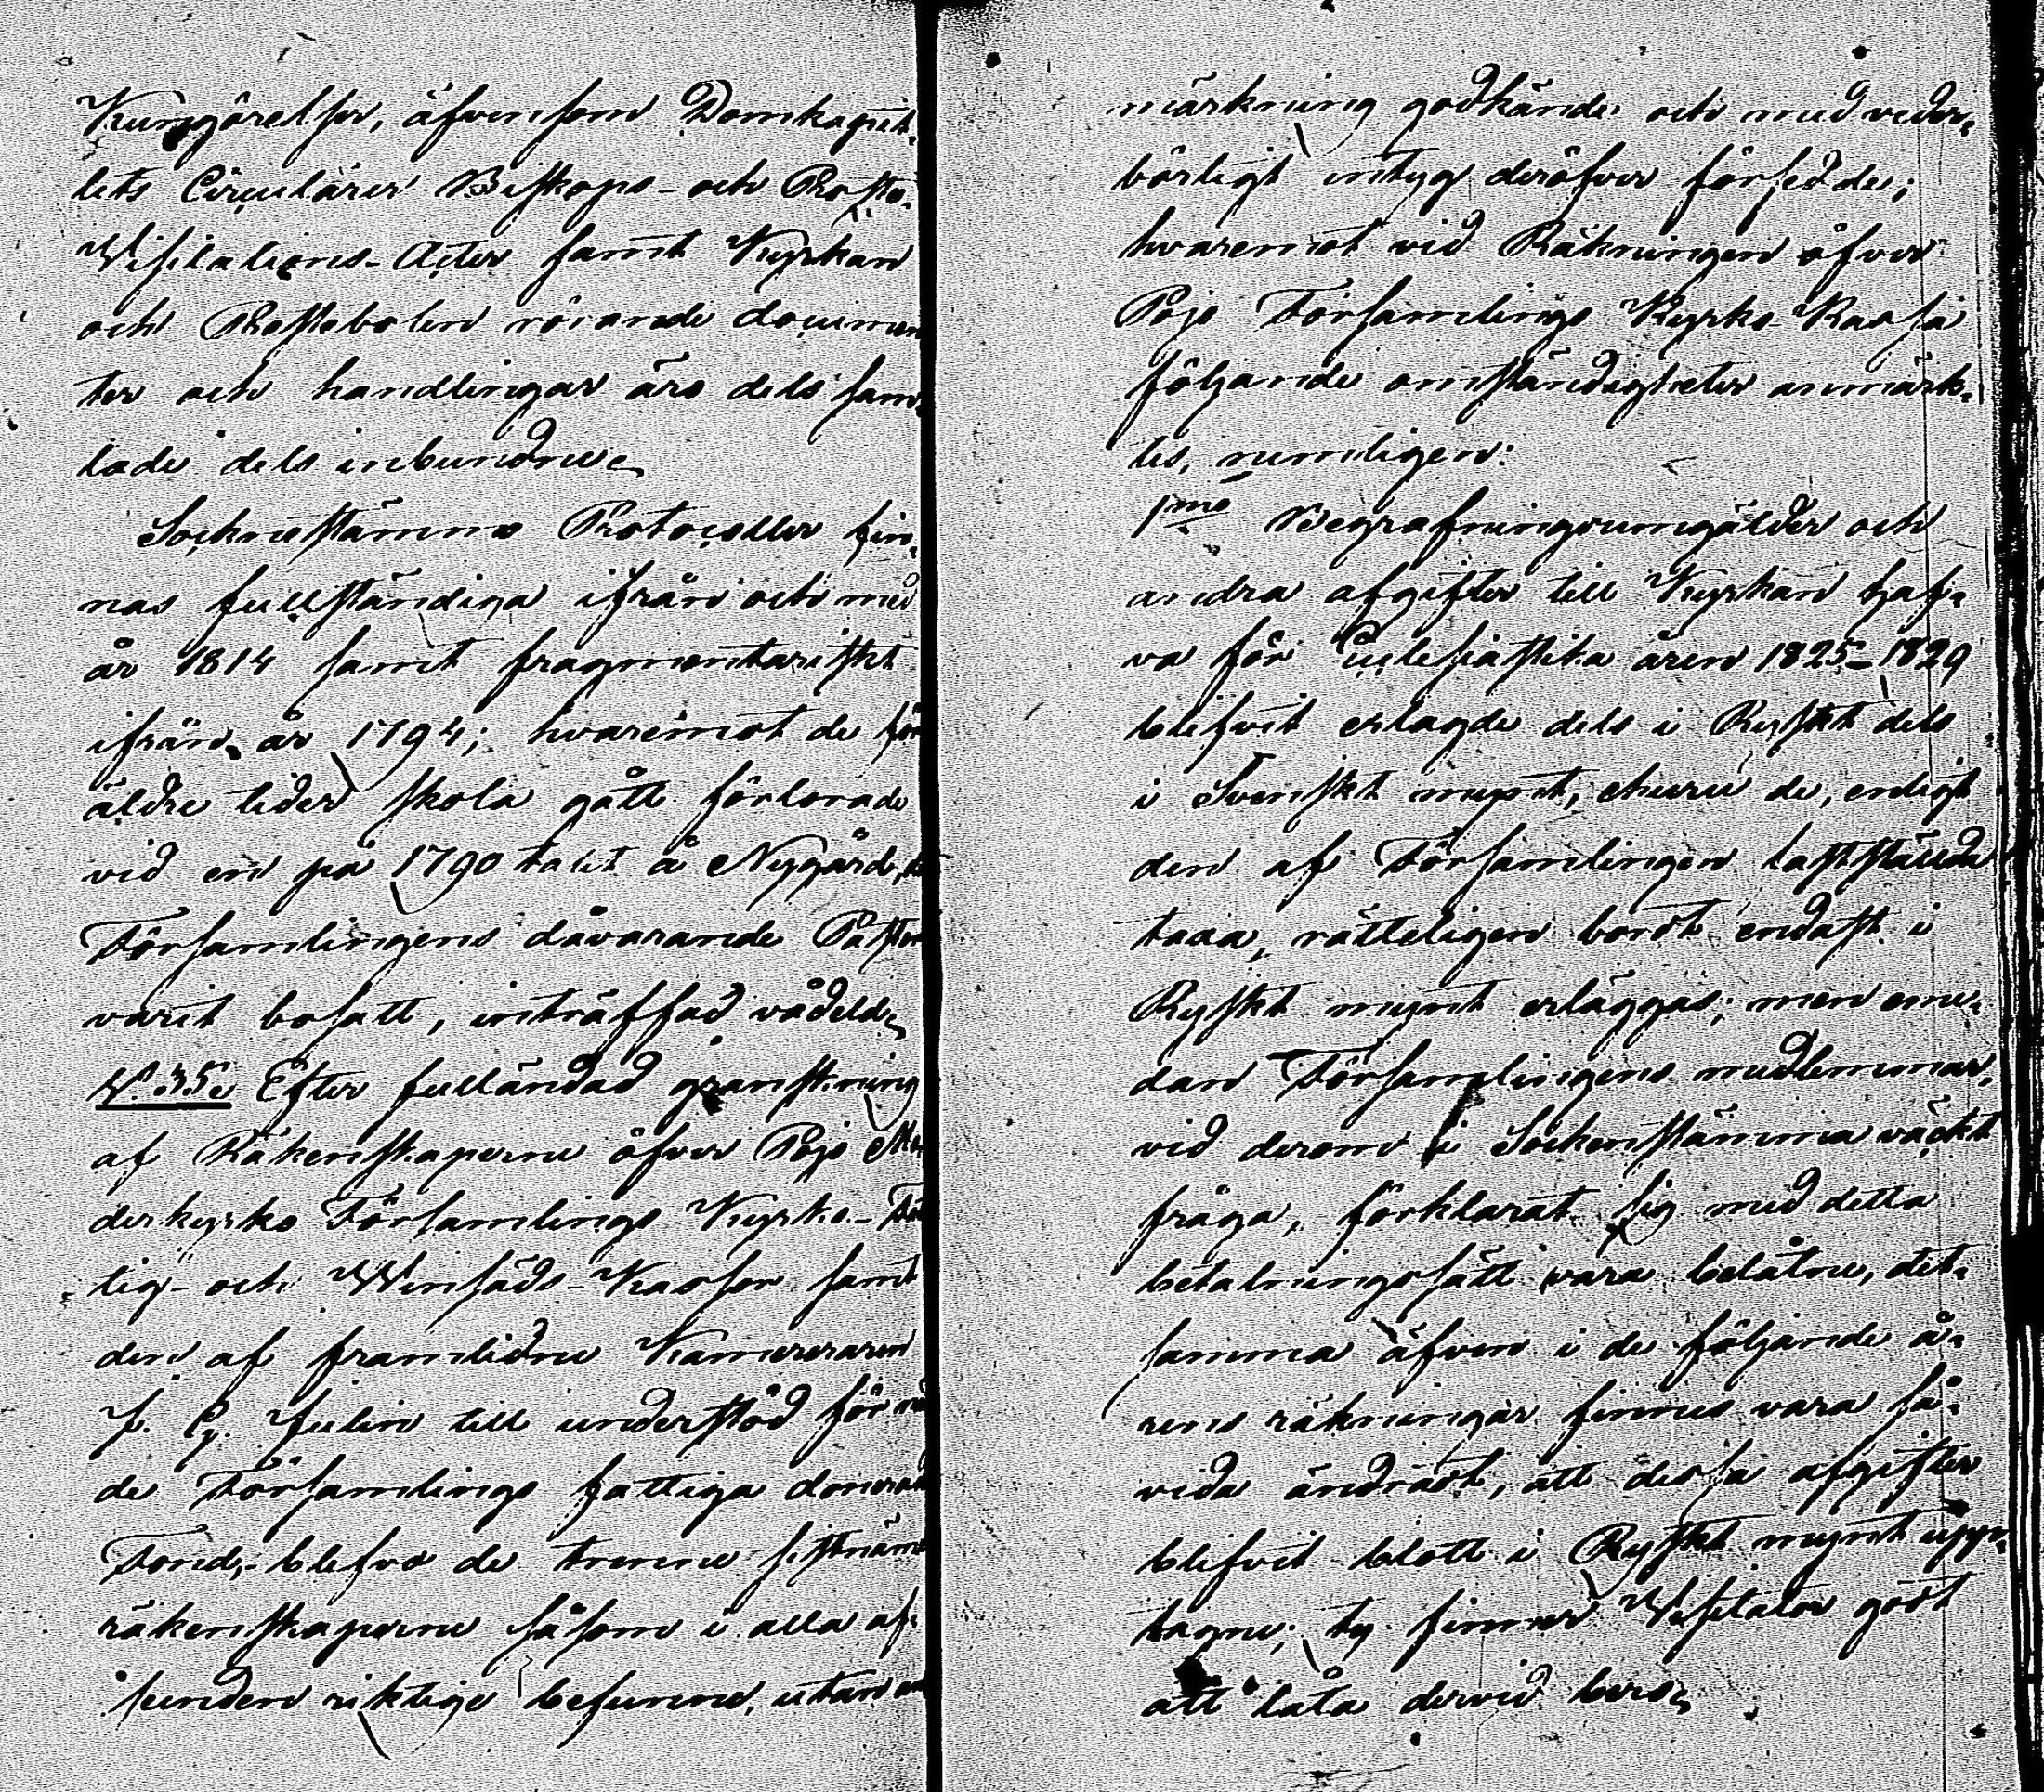 Kungörelser, äfvensom Domkapit-
lets Circulärer Biskops- och Prosts-
Visitations-Acter samt Kyrkan
och Prestebolen rörande documen
ter och handlingar äro dels sam-
lade dels inbundne.
Socknestämmo Protocoller fin-
nas fullständiga ifrån och med
år 1814 samt fragmentariskt
ifrån år 1794; hvaremot de för
äldre tider skola gått förlorade
vid en på 1790 talet å Nygård,
Församlingens dåvarande Pastor
varit bosatt, inträffad vådeld.
N:o 35. Efter fulländad granskning
af Räkenskaperne öfver Pojo Mo
derkyrko Församlings Kyrko- Fat
tig- och Winsäds-Kassor samt
den af framlidne Kamereraren
J. J. Julin till understöd för
de Församlings fattiga donerad
Fond, blefvo de trenne sistnämd
räkenskaperne såsom i alla af-
seenden riktige befunne, utan an
märkning godkände och med veder-
börligt intyg deröfver försedde;
hvaremot vid Räkningen öfver
Pojo Församlings Kyrko-Kassa
följande omständigheter anmärk-
tes, nemligen:
1mo Begrafningsumgälder och
andra afgifter till Kyrkan haf-
va för Ecclesiastika åren 1825-1829
blifvit erlagde dels i Ryskt dels
i Svenskt mynt, ehuru de, enligt
den af Församlingen fastställda
taxa, rätteligen bordt endast i
Ryskt mynt erläggas; men eme-
dan Församlingens medlemmar,
vid derom i Sockenstämma väckt
fråga, förklarat sig med detta
betalningssätt vara belåtne, det-
samma äfven i de följande å-
rens räkningar finnes vara så-
vida ändradt, att dessa afgifter
blifvit blott i Ryskt mynt upp-
tagne; ty finner Visitator godt
att låta dervid bero.